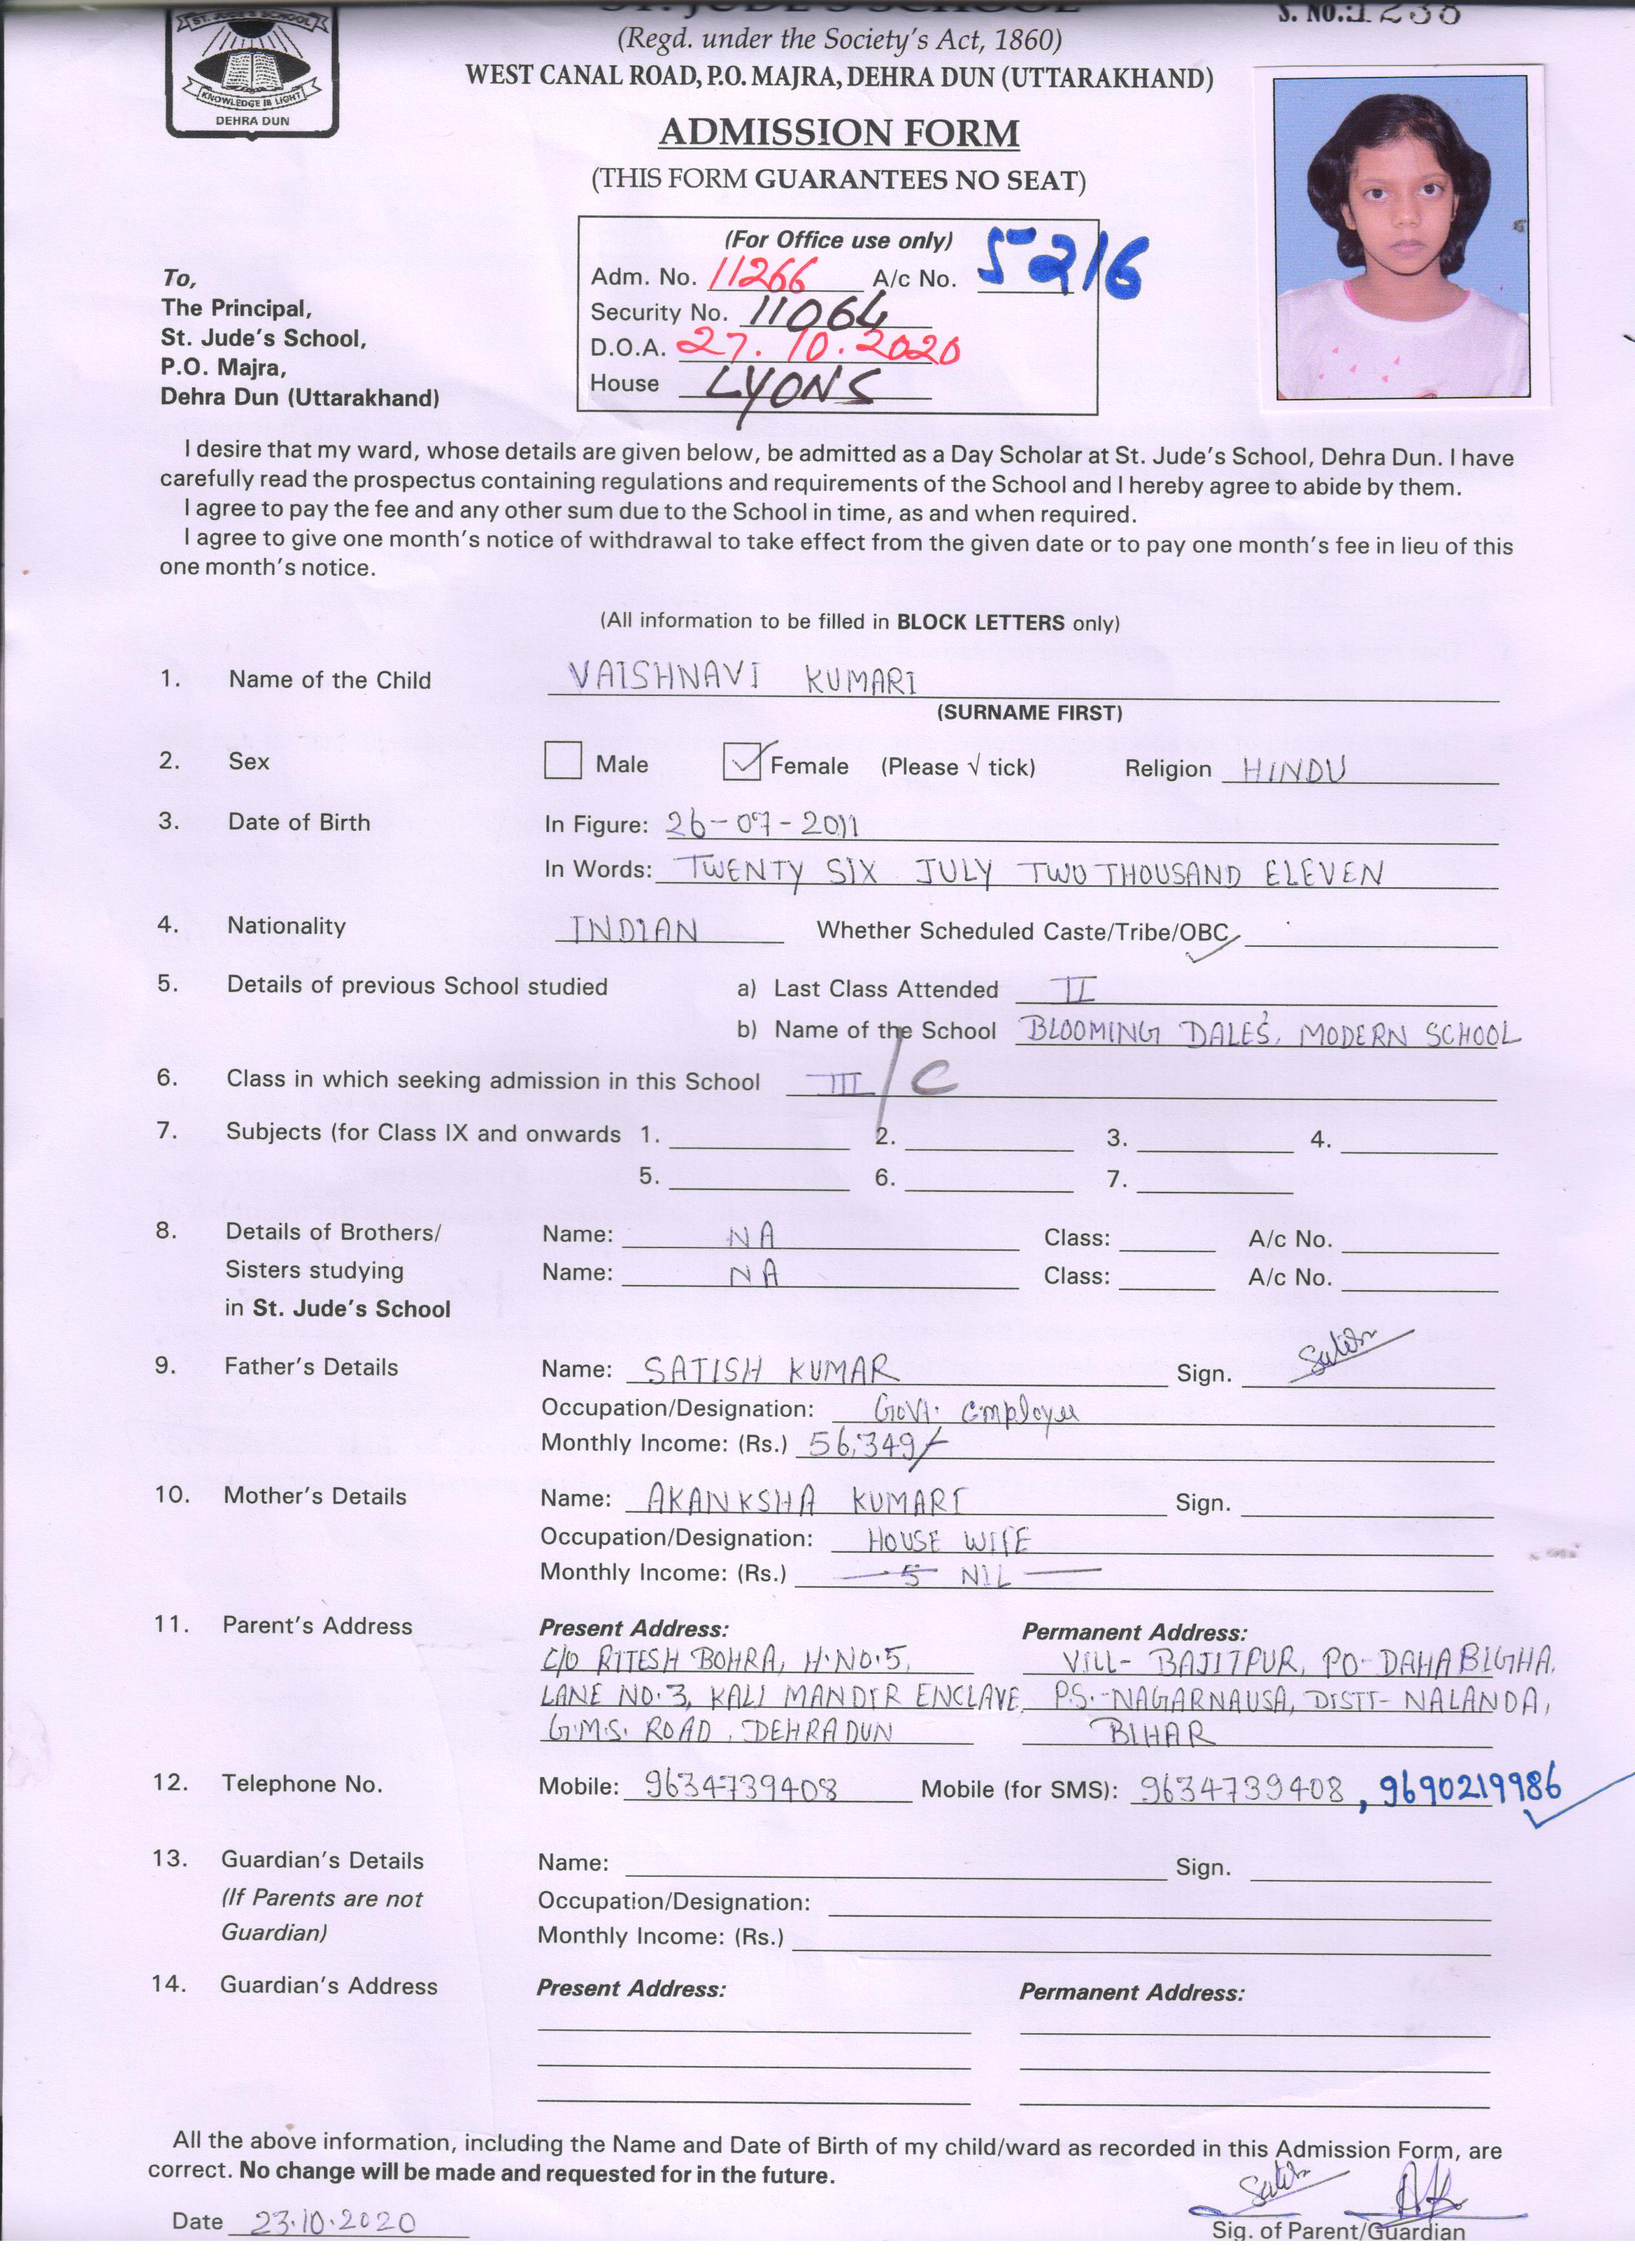 ST. JUDE'S SCHOOL
KNOWLEDGE IS LIGHT
DEHRA DUN
ST. JUDE'S SCHOOL
S. NO.:1238
(Regd. under the Society's Act, 1860)
WEST CANAL ROAD, P.O. MAJRA, DEHRA DUN (UTTARAKHAND)
ADMISSION FORM
(THIS FORM GUARANTEES NO SEAT)
(For Office use only)
Adm. No. 11266 A/c No. 5216
Security No. 11064
D.O.A. 27.10.2020
House LYONS
To,
The Principal,
St. Jude's School,
P.O. Majra,
Dehra Dun (Uttarakhand)
I desire that my ward, whose details are given below, be admitted as a Day Scholar at St. Jude's School, Dehra Dun. I have
carefully read the prospectus containing regulations and requirements of the School and I hereby agree to abide by them.
I agree to pay the fee and any other sum due to the School in time, as and when required.
I agree to give one month's notice of withdrawal to take effect from the given date or to pay one month's fee in lieu of this
one month's notice.
(All information to be filled in BLOCK LETTERS only)
1. Name of the Child VAISHNAVI KUMARI
(SURNAME FIRST)
2. Sex Male ✓ Female (Please √ tick) Religion HINDU
3. Date of Birth In Figure: 26-07-2011
In Words: TWENTY SIX JULY TWO THOUSAND ELEVEN
4. Nationality INDIAN Whether Scheduled Caste/Tribe/OBC ✓
5. Details of previous School studied a) Last Class Attended II
b) Name of the School BLOOMING DALE'S, MODERN SCHOOL
6. Class in which seeking admission in this School III/C
7. Subjects (for Class IX and onwards 1. 2. 3. 4.
5. 6. 7.
8. Details of Brothers/ Name: NA Class: A/c No.
Sisters studying Name: NA Class: A/c No.
in St. Jude's School
9. Father's Details Name: SATISH KUMAR Sign. Satish
Occupation/Designation: Govt. employee
Monthly Income: (Rs.) 56,349/-
10. Mother's Details Name: AKANKSHA KUMARI Sign.
Occupation/Designation: HOUSE WIFE
Monthly Income: (Rs.) NIL
11. Parent's Address Present Address: Permanent Address:
C/O RITESH BOHRA, H.NO.5, VILL- BAJITPUR, PO-DAHABIGHA,
LANE NO.3, KALI MANDIR ENCLAVE, P.S.-NAGARNAUSA, DISTT- NALANDA,
G.M.S. ROAD, DEHRADUN BIHAR
12. Telephone No. Mobile: 9634739408 Mobile (for SMS): 9634739408, 9690219986
13. Guardian's Details Name: Sign.
(If Parents are not Occupation/Designation:
Guardian) Monthly Income: (Rs.)
14. Guardian's Address Present Address: Permanent Address:
All the above information, including the Name and Date of Birth of my child/ward as recorded in this Admission Form, are
correct. No change will be made and requested for in the future.
Satish
Date 23.10.2020 Sig. of Parent/Guardian